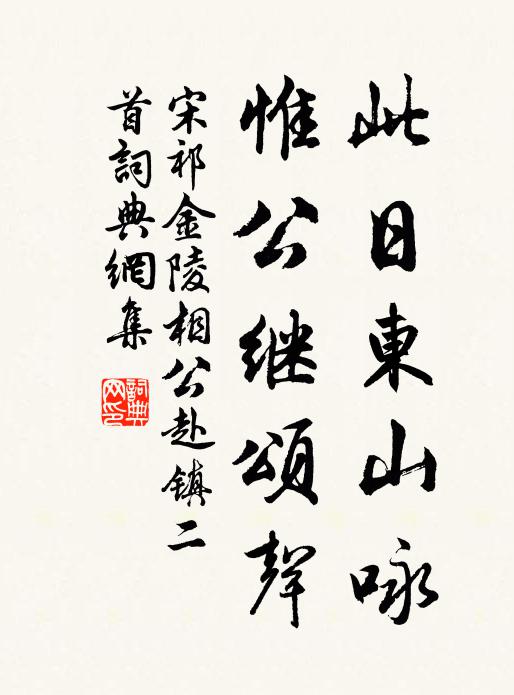 此日東山咏
惟公继頌聲
宋祁金陵相公赴鎮二
首詞典網集
詞典
网印